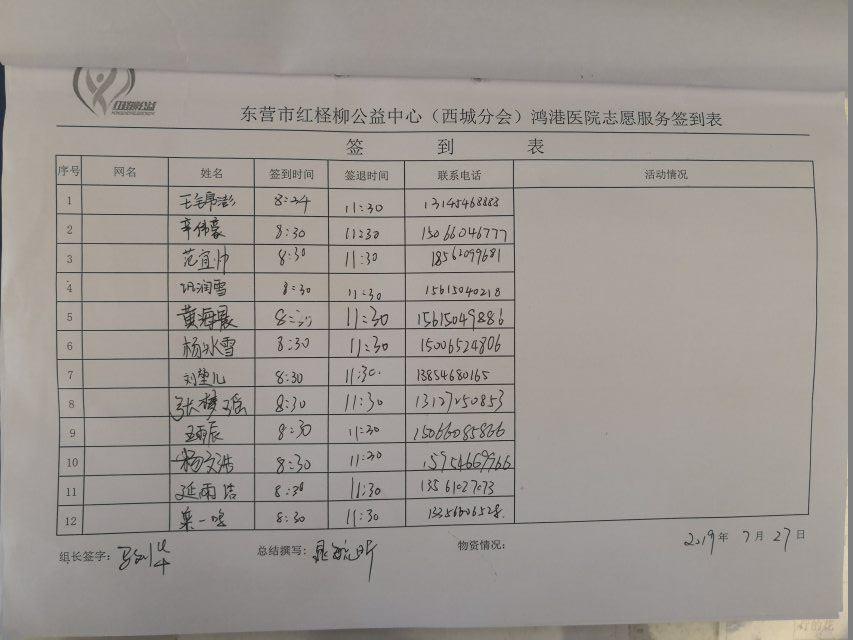 红柽柳公益
东营市红柽柳公益中心（西城分会）鸿港医院志愿服务签到表
签 到 表
序号 网名 姓名 签到时间 签退时间 联系电话 活动情况
1 8:24 11:30 13145468888
2 辛伟豪 8:30 11:30 15066046777
3 范宜帅 8:30 11:30 18562099681
4 巩润雪 8:30 11:30 15615040218
5 黄海晨 8:30 11:30 15615049886
6 杨冰雪 8:30 11:30 15006524806
7 刘堃儿 8:30 11:30 13854680165
8 张梦瑶 8:30 11:30 13127250853
9 王雨辰 8:30 11:30 15066085866
10 杨文浩 8:30 11:30 15954669966
11 延雨洁 8:30 11:30 13561027073
12 栾一 8:30 11:30
组长签字： 总结撰写： 物资情况： 2019年 7月 27日